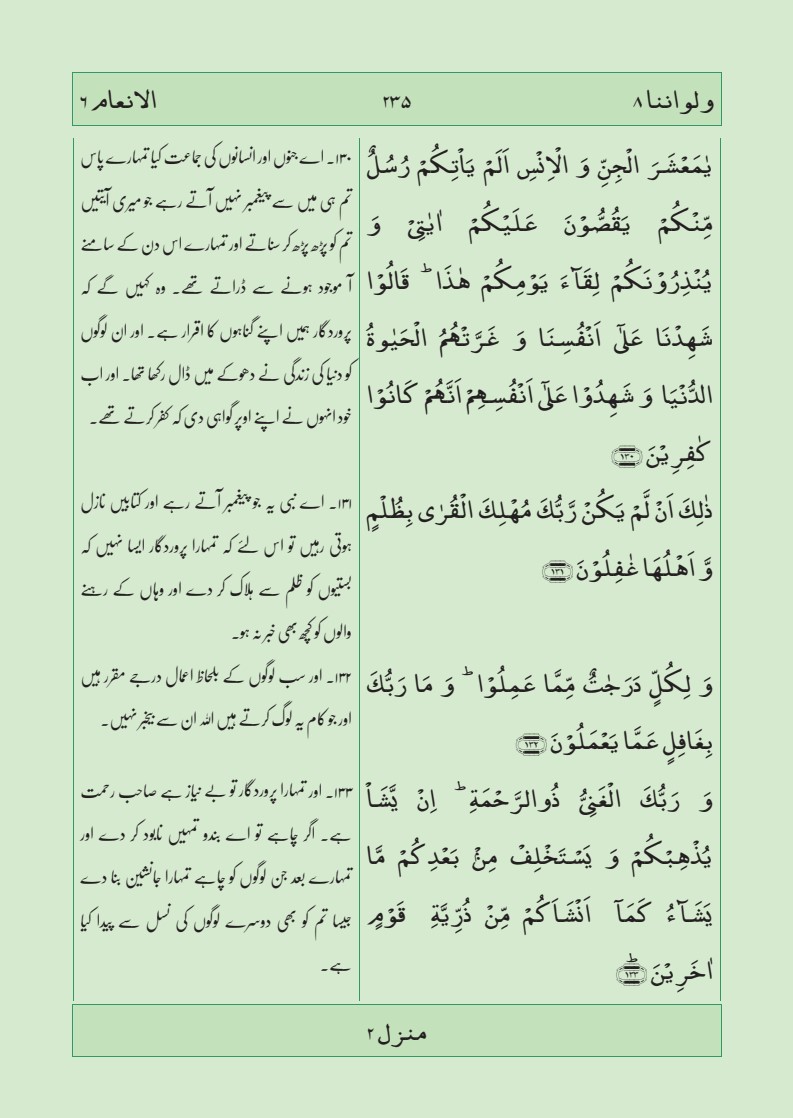 ولواننا ۸ ۲۳۵ الانعام ۶
یٰمَعۡشَرَ الۡجِنِّ وَ الۡاِنۡسِ اَلَمۡ یَاۡتِکُمۡ رُسُلٌ
مِّنۡکُمۡ یَقُصُّوۡنَ عَلَیۡکُمۡ اٰیٰتِیۡ وَ
یُنۡذِرُوۡنَکُمۡ لِقَآءَ یَوۡمِکُمۡ ہٰذَا ؕ قَالُوۡا
شَہِدۡنَا عَلٰۤی اَنۡفُسِنَا وَ غَرَّتۡہُمُ الۡحَیٰوۃُ
الدُّنۡیَا وَ شَہِدُوۡا عَلٰۤی اَنۡفُسِہِمۡ اَنَّہُمۡ کَانُوۡا
کٰفِرِیۡنَ ﴿۱۳۰﴾
ذٰلِکَ اَنۡ لَّمۡ یَکُنۡ رَّبُّکَ مُہۡلِکَ الۡقُرٰی بِظُلۡمٍ
وَّ اَہۡلُہَا غٰفِلُوۡنَ ﴿۱۳۱﴾
وَ لِکُلٍّ دَرَجٰتٌ مِّمَّا عَمِلُوۡا ؕ وَ مَا رَبُّکَ
بِغَافِلٍ عَمَّا یَعۡمَلُوۡنَ ﴿۱۳۲﴾
وَ رَبُّکَ الۡغَنِیُّ ذُوالرَّحۡمَۃِ ؕ اِنۡ یَّشَاۡ
یُذۡہِبۡکُمۡ وَ یَسۡتَخۡلِفۡ مِنۡۢ بَعۡدِکُمۡ مَّا
یَشَآءُ کَمَاۤ اَنۡشَاَکُمۡ مِّنۡ ذُرِّیَّۃِ قَوۡمٍ
اٰخَرِیۡنَ ﴿۱۳۳﴾ؕ
۱۳۰۔ اے جنوں اور انسانوں کی جماعت کیا تمہارے پاس
تم ہی میں سے پیغمبر نہیں آتے رہے جو میری آیتیں
تم کو پڑھ پڑھ کر سناتے اور تمہارے اس دن کے سامنے
آ موجود ہونے سے ڈراتے تھے۔ وہ کہیں گے کہ
پروردگار ہمیں اپنے گناہوں کا اقرار ہے۔ اور ان لوگوں
کو دنیا کی زندگی نے دھوکے میں ڈال رکھا تھا۔ اور اب
خود انہوں نے اپنے اوپر گواہی دی کہ کفر کرتے تھے۔
۱۳۱۔ اے نبی یہ جو پیغمبر آتے رہے اور کتابیں نازل
ہوتی رہیں تو اس لئے کہ تمہارا پروردگار ایسا نہیں کہ
بستیوں کو ظلم سے ہلاک کر دے اور وہاں کے رہنے
والوں کو کچھ بھی خبر نہ ہو۔
۱۳۲۔ اور سب لوگوں کے بلحاظ اعمال درجے مقرر ہیں
اور جو کام یہ لوگ کرتے ہیں اللہ ان سے بیخبر نہیں۔
۱۳۳۔ اور تمہارا پروردگار تو بے نیاز ہے صاحب رحمت
ہے۔ اگر چاہے تو اے بندو تمہیں نابود کر دے اور
تمہارے بعد جن لوگوں کو چاہے تمہارا جانشین بنا دے
جیسا تم کو بھی دوسرے لوگوں کی نسل سے پیدا کیا
ہے۔
منزل ۲